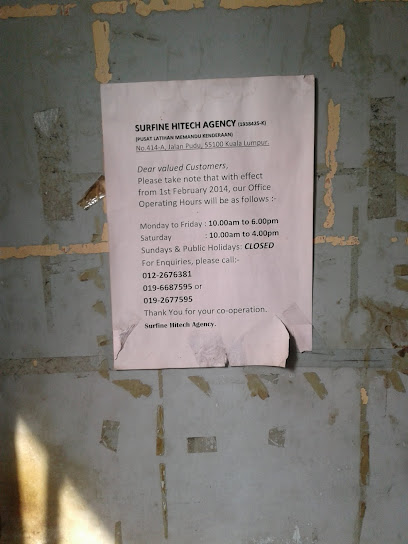 SURFINE HITECH AGENCY (1938425-K)
(PUSAT LATIHAN MEMANDU KENDERAAN)
No.414-A, Jalan Pudu, 55100 Kuala Lumpur.
Dear valued Customers,
Please take note that with effect
from 1st February 2014, our Office
Operating Hours will be as follows :-
Monday to Friday : 10.00am to 6.00pm
Saturday : 10.00am to 4.00pm
Sundays & Public Holidays: CLOSED
For Enquiries, please call:-
012-2676381
019-6687595 or
019-2677595
Thank You for your co-operation.
Surfine Hitech Agency.